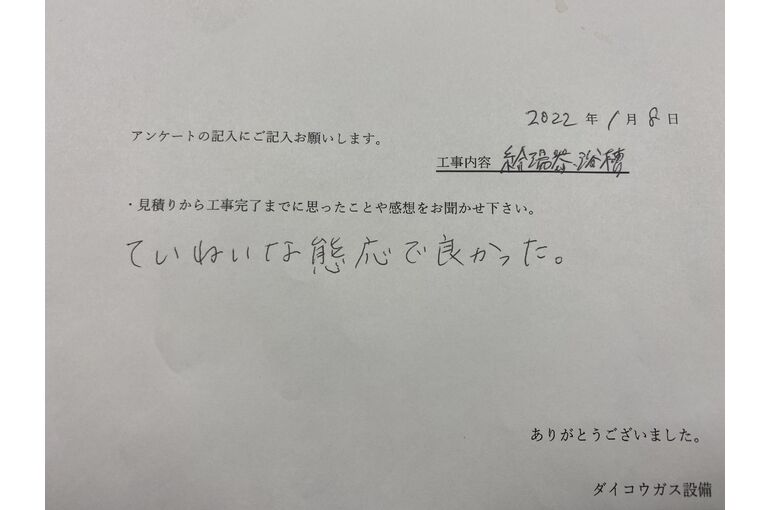 2022年1月8日
アンケートの記入にご記入お願いします。
工事内容 給湯器、浴槽
・見積りから工事完了までに思ったことや感想をお聞かせ下さい。
ていねいな態応で良かった。
ありがとうございました。
ダイコウガス設備